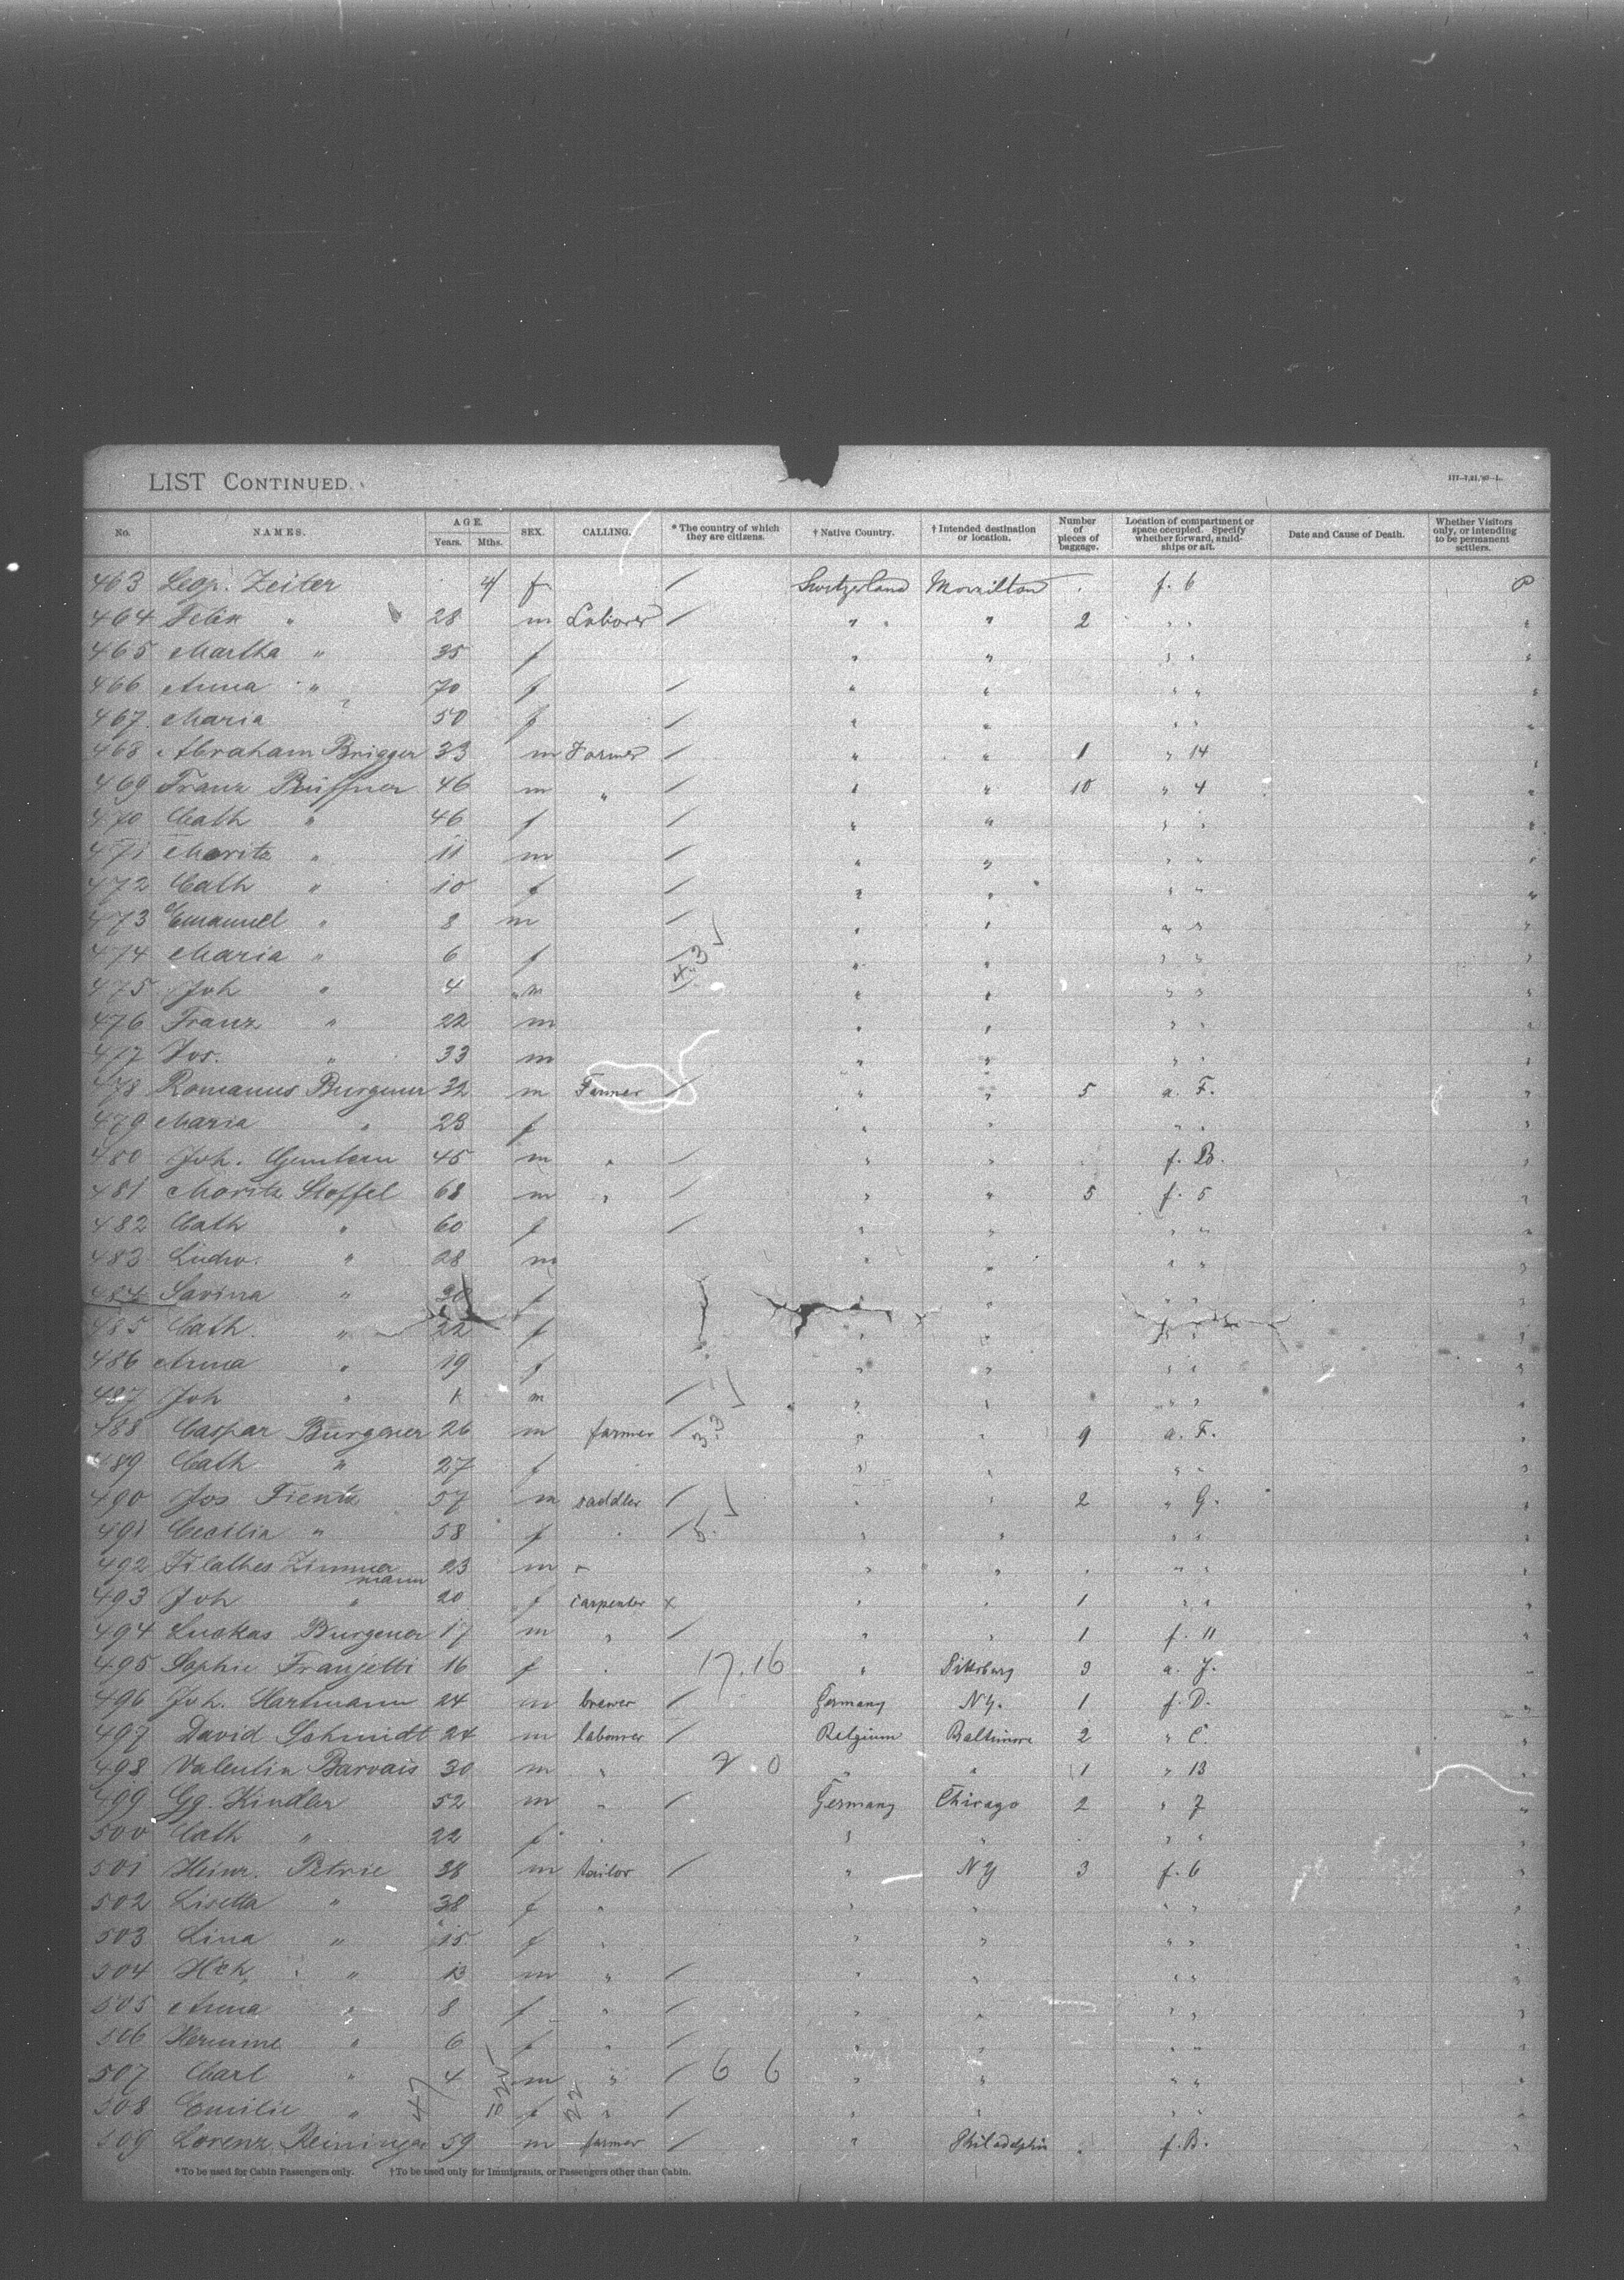 LIST CONTINUED.
177–7,21,'87–L.
No. NAMES. AGE. Years. Mths. SEX. CALLING. * The country of which they are citizens. † Native Country. † Intended destination or location. Number of pieces of baggage. Location of compartment or space occupied. Specify whether forward, amidships or aft. Date and Cause of Death. Whether Visitors only, or intending to be permanent settlers.
463 Leop. Zeiter f / Switzerland Morrilton f. 6 P
464 Felix " 28 m Laborer / " " 2 " "
465 Martha " 35 f " " " "
466 Anna " 70 f / " " " "
467 Maria 50 f / " " " "
468 Abraham Brigger 33 m Farmer / " " 1 " 14 "
469 Franz Ruffner 46 m " / " " 10 " 4 "
470 Cath " 46 f / " " " " "
471 Moritz " 11 m / " " " " "
472 Cath " 10 f / " " " " "
473 Emanuel " 8 m / " " " " "
474 Maria " 6 f / " " " " "
475 Joh " 4 m / " " " " "
476 Franz " 22 m " " " " "
477 Jos. " 33 m " " " " "
478 Romanus Burgener 32 m Farmer / " " 5 a. F. "
479 Maria " 23 f " " " " "
480 Joh. 45 m " / " " f. B. "
481 Moritz Stoffel 68 m " / " " 5 f. 5 "
482 Cath " 60 f / " " " " "
483 Ludw. " 28 m " " " " "
484 Savina " f " " " " "
485 Cath. " 22 f " " " " "
486 Anna " 19 f " " " " "
487 Joh " m / " " " " "
488 Caspar Burgener 26 m farmer / 33 " " 9 a. F. "
489 Cath " 27 f " " " " "
490 Jos Fientz 57 m saddler / " " 2 " G. "
491 Cecilia " 58 f " / 5. " " " " "
492 Zimmermann 23 m " " " " "
493 Joh " 20 f carpenter x " " 1 " " "
494 Luckas Burgener 17 m " / " " 1 f. 11 "
495 Sophie Franjetti 16 f " 17.16 " Pittsburg 3 a. J. "
496 Joh. Hartmann 24 m brewer / Germany N.Y. 1 f. D. "
497 David Schmidt 24 m labourer / Belgium Baltimore 2 " C. "
498 Valentin Barvais 30 m " 2 0 " " 1 " 13 "
499 Gg. Kindler 52 m " / Germany Chicago 2 " 7 "
500 Cath " 22 f " " " " " "
501 Heinr. Petrie 38 m tailor / " N Y 3 f. 6 "
502 Lisetta " 38 f " " " " " "
503 Lina " 15 f " " " " " "
504 Hch " 13 m " / " " " " "
505 Anna " 8 f " / " " " " "
506 Hermine " 6 f " / " " " " "
507 Carl " 4 m " / 6 6 " " " " "
508 Emilie " f " / " " " " "
47 22
509 Lorenz Reininger 59 m farmer / " Philadelphia f. B. "
* To be used for Cabin Passengers only. † To be used only for Immigrants, or Passengers other than Cabin.